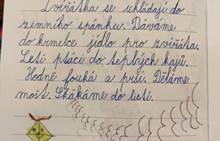 Zvířátka se ukládají do
zimního spánku. Dáváme
do krmelce jídlo pro zvířata.
Letí ptáci do teplých krajů.
Hodně fouká a prší. Děláme
mošt. Skákáme do listí.